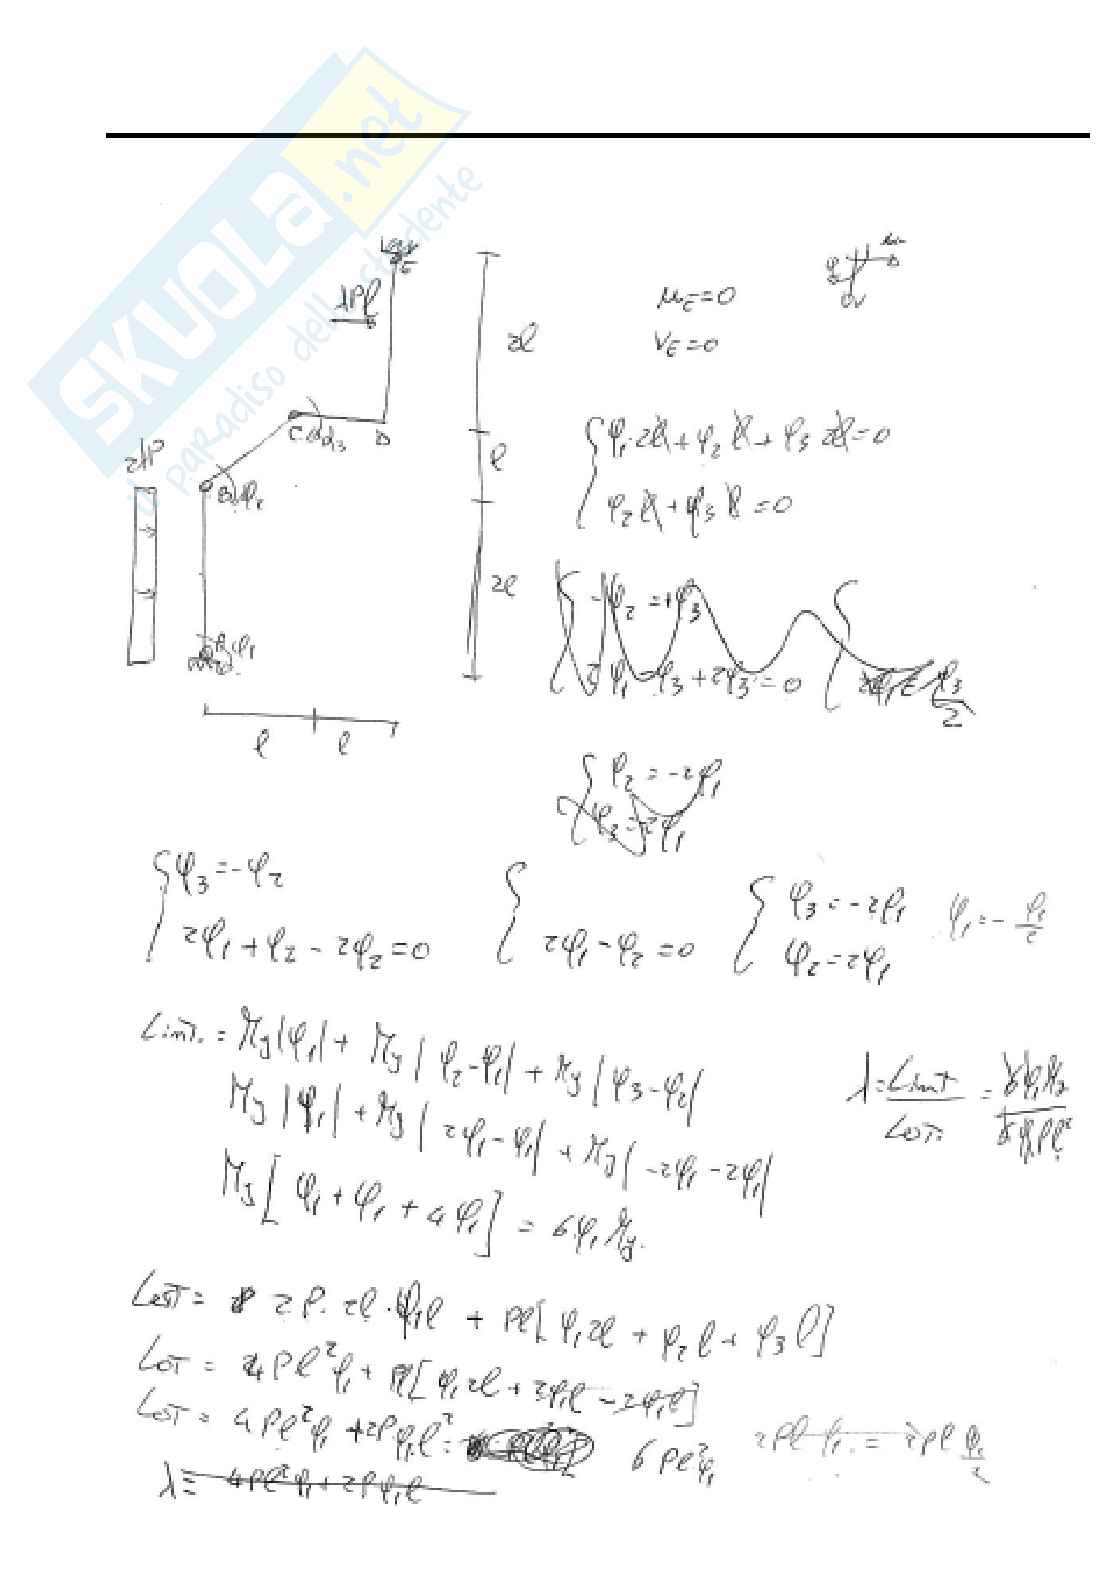 SKUOLA.net
il paradiso dello studente
E
λPl
2l
μE=0
VE=0
C
D
α3
l
2λP
B
φ2
2l
φ1
l
l
φ1·2l+φ2 l+φ3 2l=0
φ2 l+φ3 l=0
-φ2=+φ3
2φ1-φ3+2φ3=0
φ3/2
φ2=-2φ1
φ3=2φ1
φ3=-φ2
2φ1+φ2-2φ2=0
2φ1-φ2=0
φ3=-2φ1
φ2=2φ1
Lint.=My|φ1|+My|φ2-φ1|+My|φ3-φ2|
My|φ1|+My|2φ1-φ1|+My|-2φ1-2φ1|
My[φ1+φ1+4φ1]=6φ1My.
λ=Lint/Lest.=6φ1My/6φ1Pl²
Lest=2P·2l·φ1l+Pl[φ12l+φ2l+φ3l]
Lest=4Pl²φ1+Pl[φ12l+2φ1l-2φ1l]
Lest=4Pl²φ1+2Pφ1l²= 6Pl²φ1
λ=4Pl²φ1+2Pφ1l